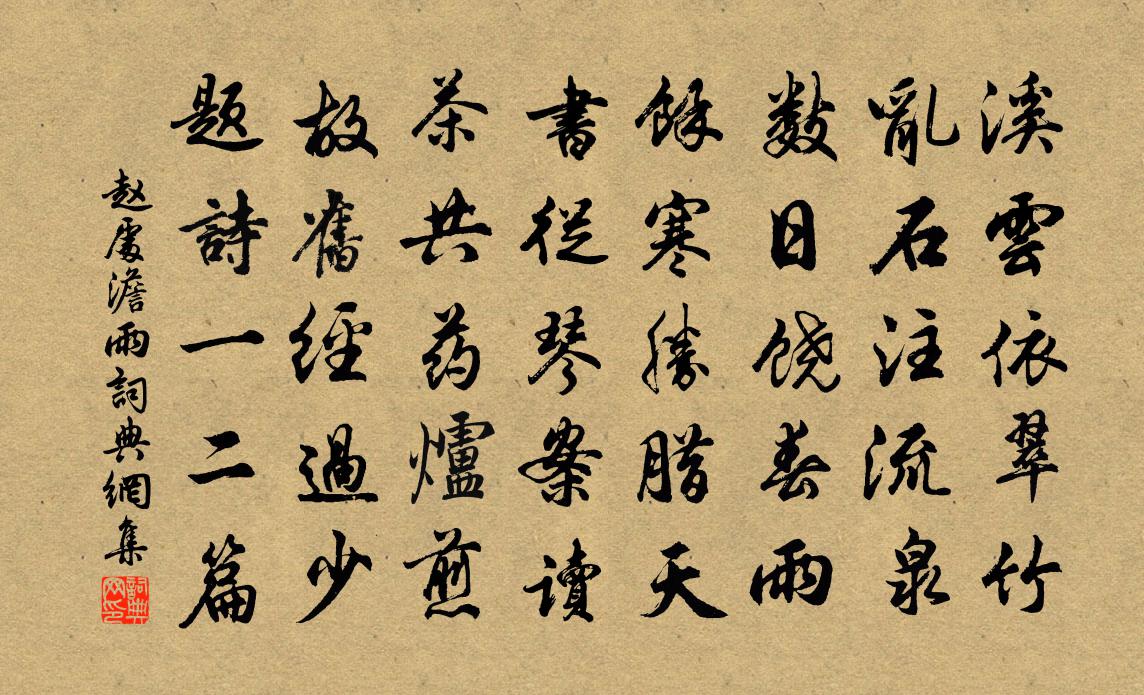 溪雲依翠竹
亂石注流泉
數日饶春雨
餘寒勝腊天
書從琴案讀
茶共药爐煎
故舊經過少
题詩一二篇
赵處澹雨詞典網集
詞典网印